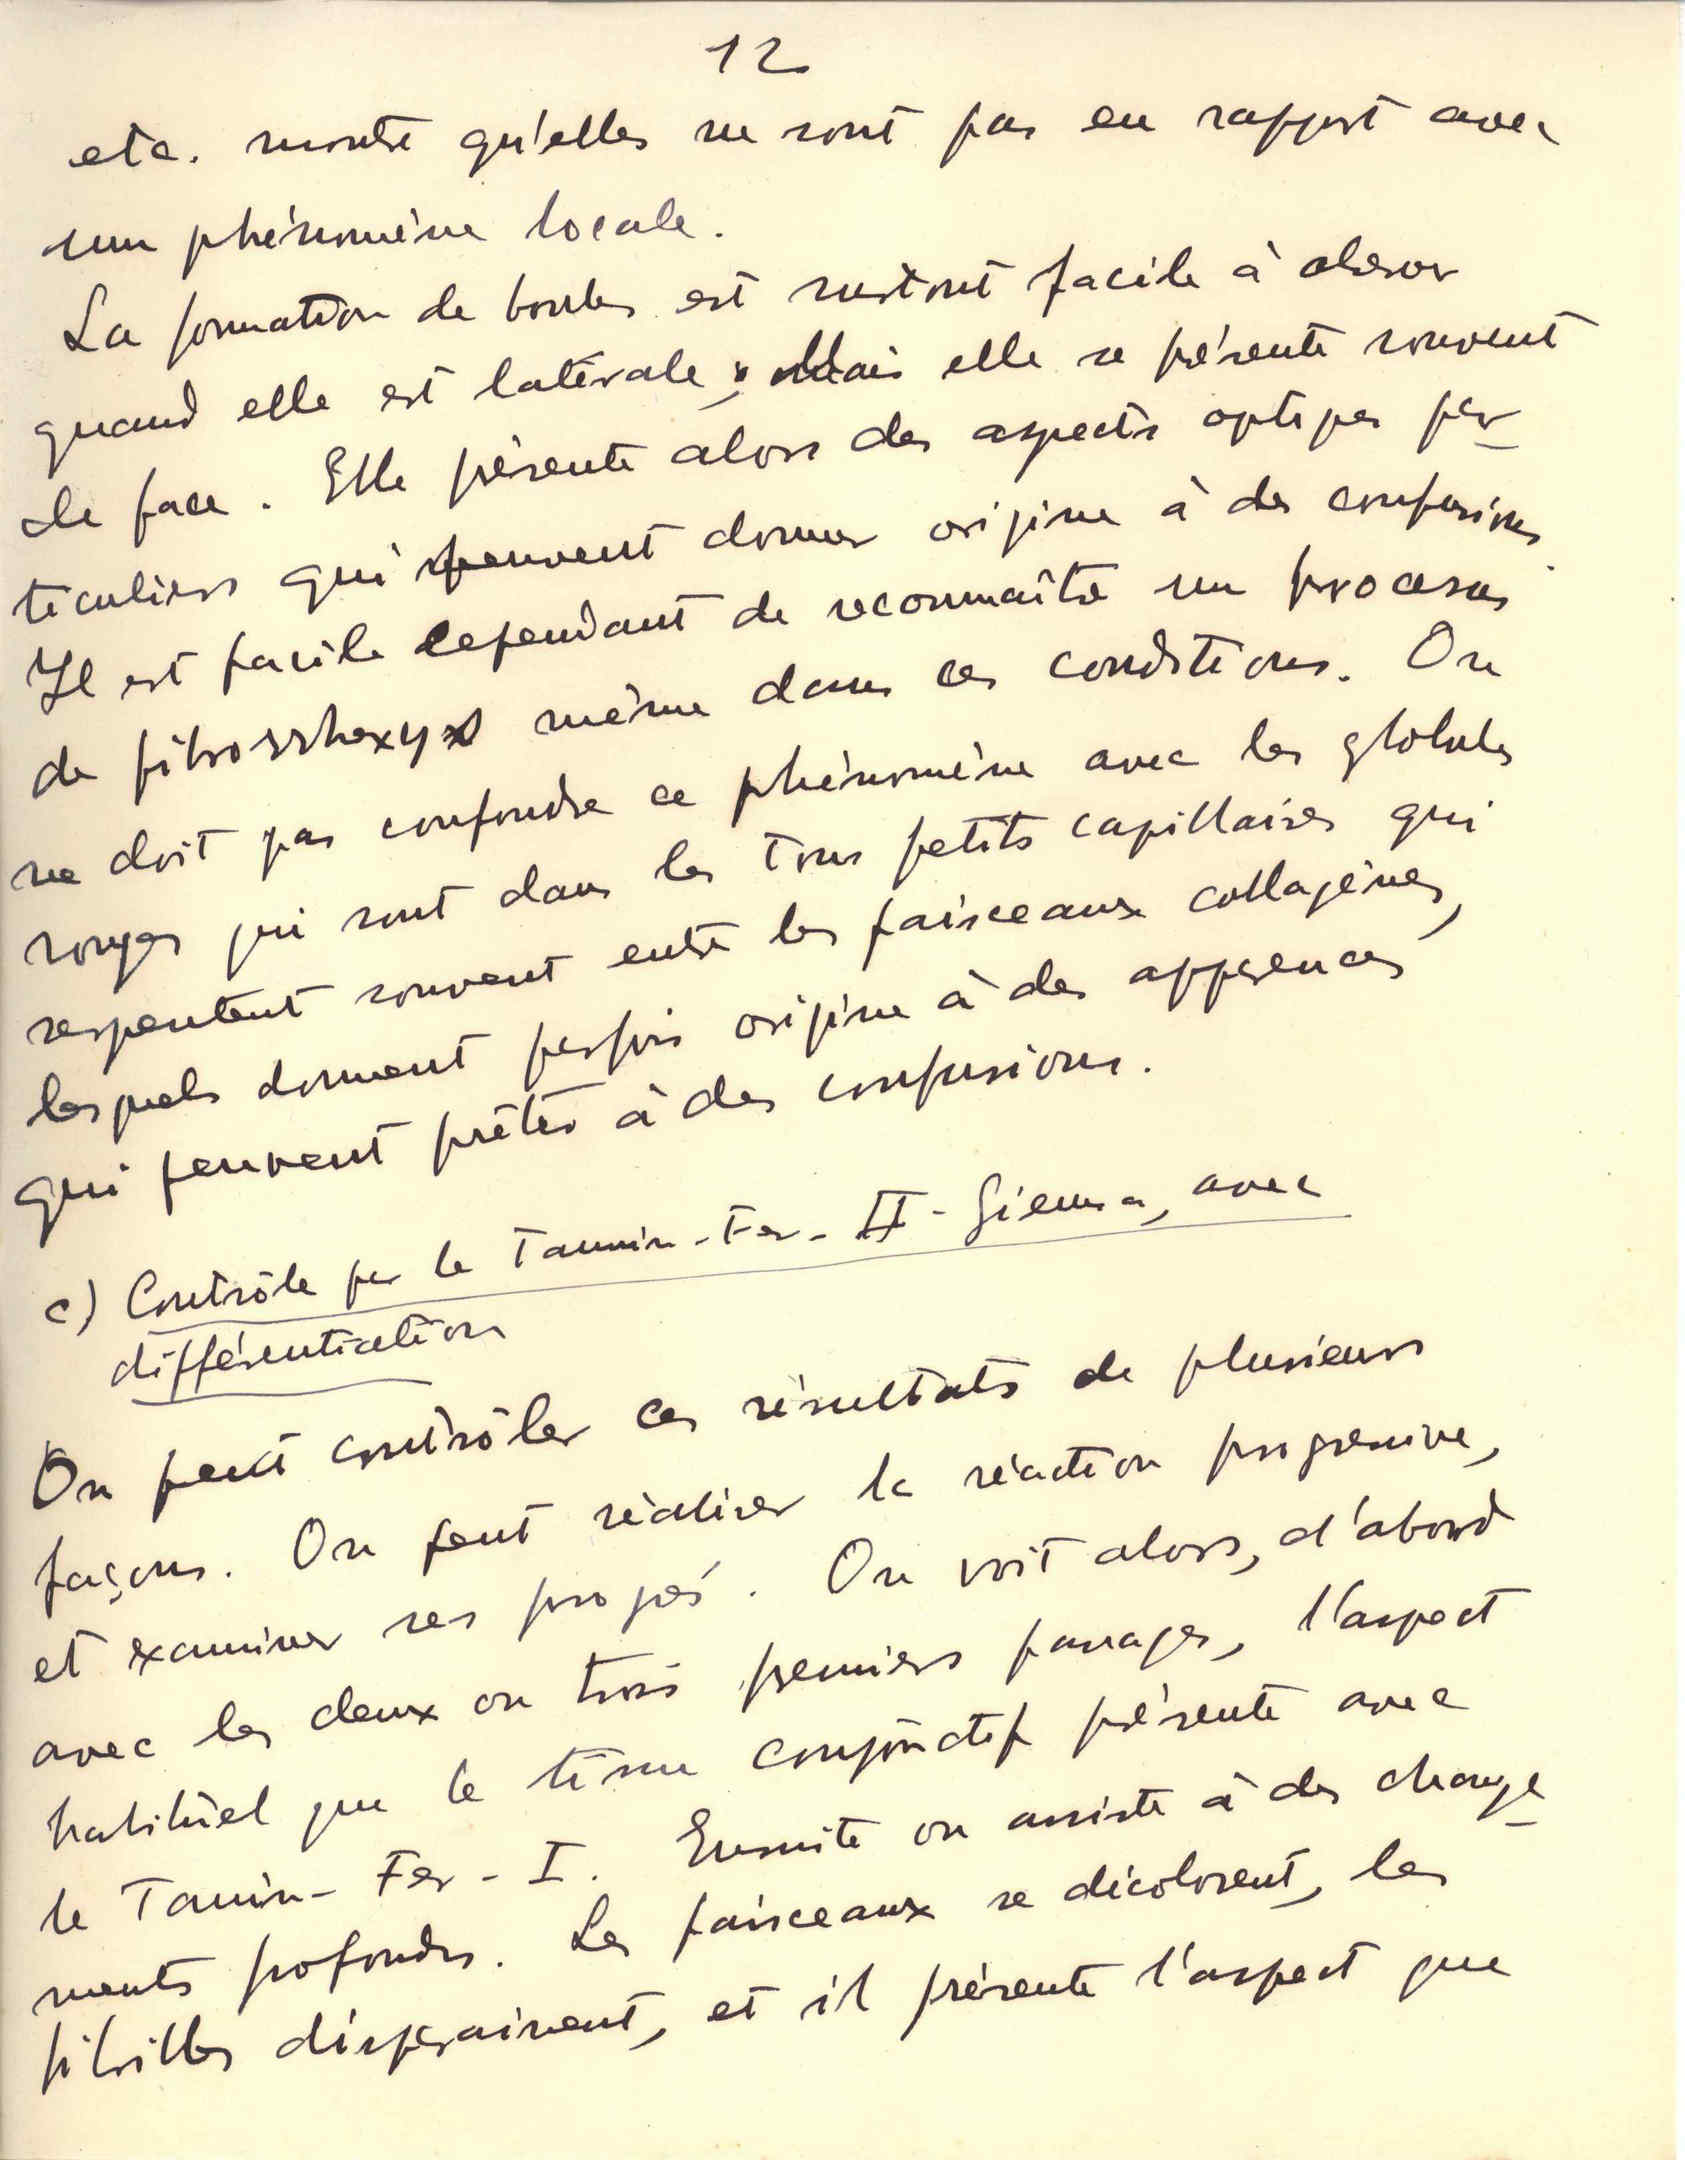 12
etc. montre qu'elles ne sont pas en rapport avec
un phénomène locale.
La formation de boules est surtout facile à observer
quand elle est latérale ; mais elle se présente souvent
de face. Elle présente alors des aspects optiques par_
ticuliers qui peuvent donner origine à des confusions.
Il est facile cependant de reconnaître un processus
de fibrorrhexys même dans ces conditions. On
ne doit pas confondre ce phénomène avec les globules
rouges qui sont dans les tous petits capillaires qui
serpentent souvent entre les faisceaux collagènes,
lesquels donnent parfois origine à des apparences
qui peuvent prêter à des confusions.
c) Contrôle par le Tannin-Fer-II-Giemsa, avec
différentiation
On peut contrôler ces résultats de plusieurs
façons. On peut réaliser la réaction progressive,
et examiner ses progrès. On voit alors, d'abord
avec les deux ou trois premiers passages, l'aspect
habituel que le tissu conjonctif présente avec
le Tanin-Fer-I. Ensuite on assiste à des change_
ments profonds. Les faisceaux se décolorent, les
fibrilles disparaissent, et il présente l'aspect que